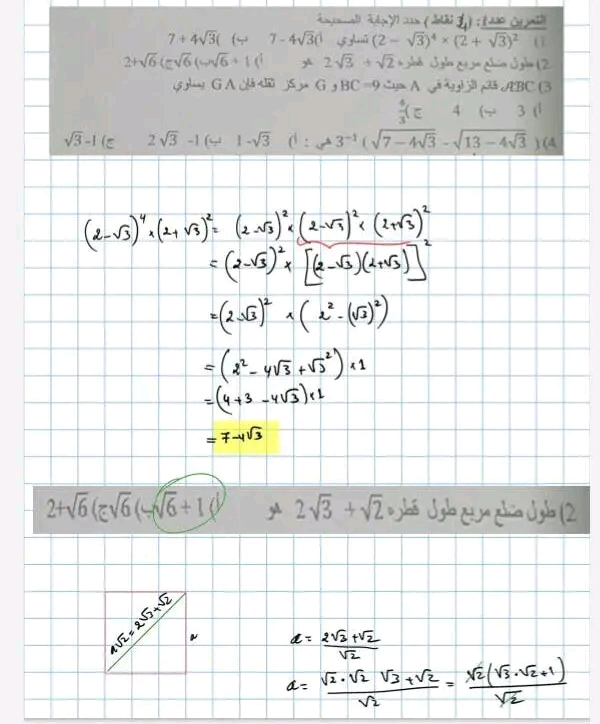 التمرين عدد1: (3 نقاط) حدد الإجابة الصحيحة
1) (2 − √3)⁴ × (2 + √3)² تساوي أ) 7 - 4√3 ب) 7 + 4√3
2) طول ضلع مربع طول قطره √2 + 2√3 هو أ) 1 + √6 ب) √6 ج) √6+2
3) ABC قائم الزاوية في A حيث BC=9 و G مركز ثقله فإن GA يساوي
أ) 3 ب) 4 ج)
4) (√(7 − 4√3) − √(13 − 4√3))3⁻¹ هي : أ) 1 - √3 ب) 1- 2√3 ج) 1-√3
(2-√3)⁴ × (2+√3)² = (2-√3)² × (2-√3)² × (2+√3)²
= (2-√3)² × [(2-√3)(2+√3)]²
= (2-√3)² × (2² - (√3)²)
= (2² - 4√3 + √3²) × 1
= (4+3 -4√3) × 1
= 7-4√3
2) طول ضلع مربع طول قطره √2 + 2√3 هو أ) 1 + √6 ب) √6 ج) √6+2
a√2 = 2√3+√2
a
a = (2√3+√2)/√2
a = (√2·√2 √3+√2)/√2 = √2(√3·√2+1)/√2